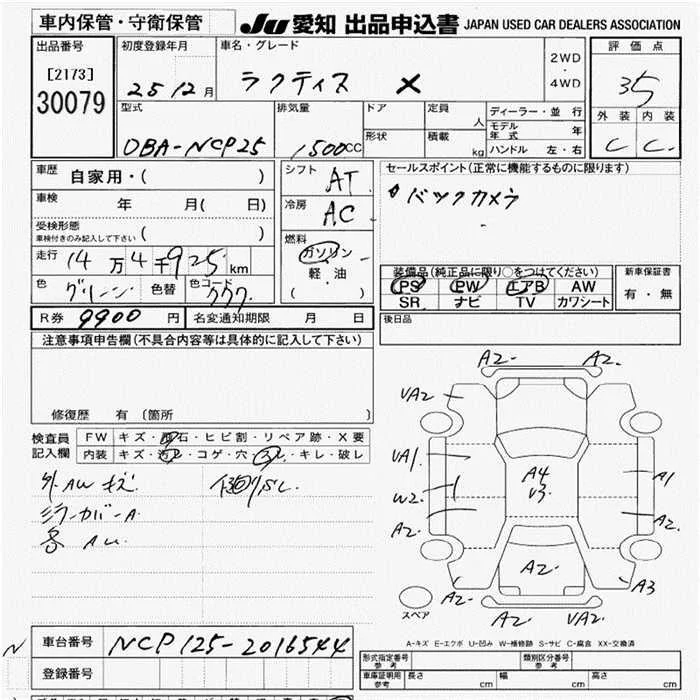 車内保管・守衛保管
JU 愛知 出品申込書 JAPAN USED CAR DEALERS ASSOCIATION
出品番号
[2173]
30079
初度登録年月
25 12 月
車名・グレード
ラクティス X
2WD
・
4WD
評価点
3.5
外装 内装
C C
型式
DBA-NCP125
排気量
1500 CC
ドア
形状
定員
人
積載
kg
ディーラー・並行
モデル年式 年
ハンドル 左・右
車歴 自家用・( )
車検 年 月( 日)
受検形態
車検付きのみ記入して下さい ( )
走行 14 万 4 千 925 km
色 グリーン 色替 色コード 777
シフト AT
冷房 AC
燃料
ガソリン
軽・油
( )
セールスポイント(正常に機能するものに限ります)
バックカメラ
装備品(純正品に限り○をつけてください)
PS PW エアB AW
SR ナビ TV カワシート
新車保証書
有・無
R券 9900 円 名変通知期限 月 日
後日品
注意事項申告欄(不具合内容等は具体的に記入して下さい)
修復歴 有 〔箇所 〕
検査員記入欄
FW キズ・飛石・ヒビ割・リペア跡・X要
内装 キズ・汚レ・コゲ・穴・スレ・キレ・破レ
外AWキズ
ミラーカバーA
各 AU
A2 A2
VA2
VA1
W2
A2
A4
V3
A1
A2
A2
A2
A3
A2 VA2
スペア
A-キズ E-エクボ U-凹み W-補修跡 S-サビ C-腐食 XX-交換済
N
車台番号 NCP125-2016544
登録番号
形式指定番号
参考
類別区分番号
参考
車庫証明用
参考
長さ cm 幅 cm 高さ cm